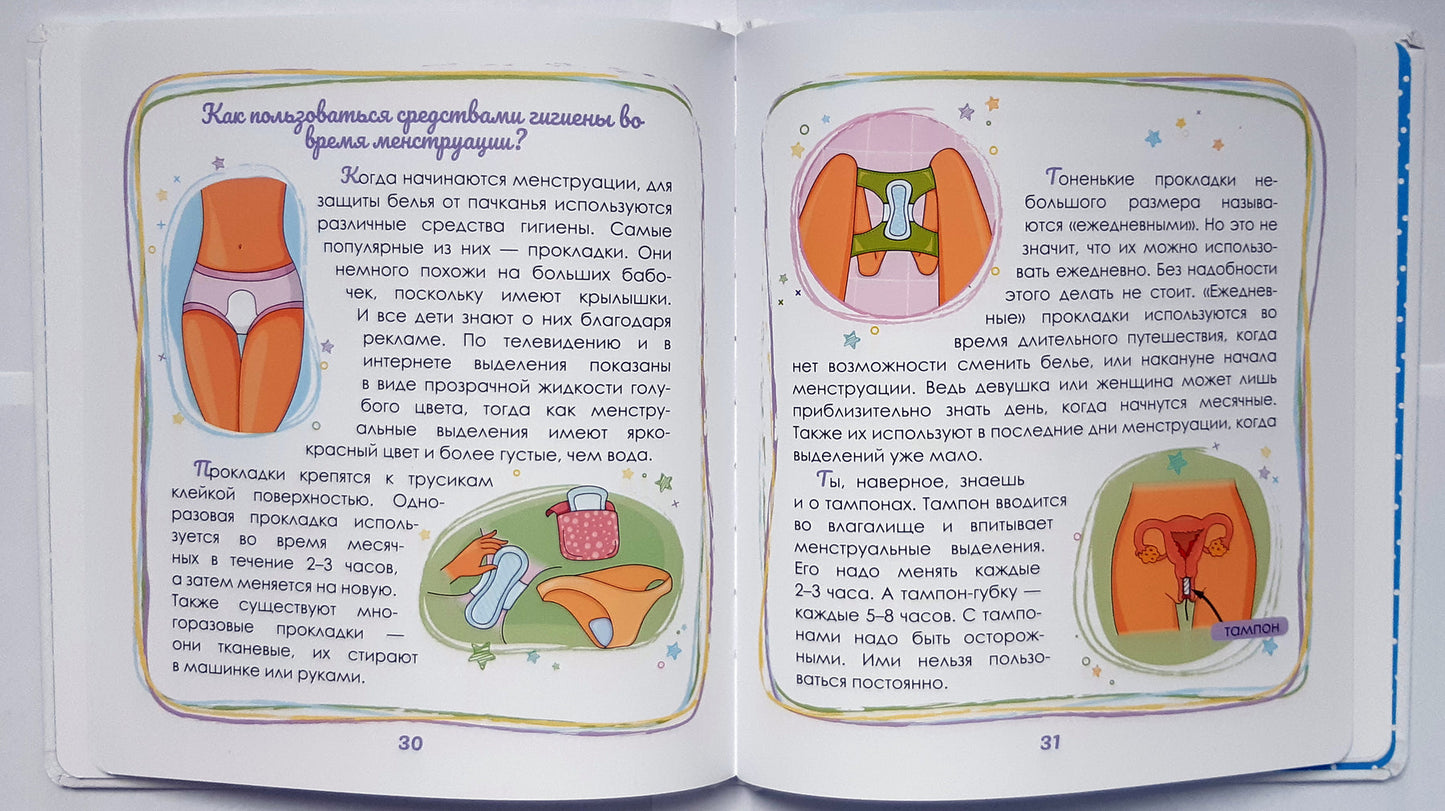 Как пользоваться средствами гигиены во
время менструации?
Когда начинаются менструации, для
защиты белья от пачканья используются
различные средства гигиены. Самые
популярные из них — прокладки. Они
немного похожи на больших бабо-
чек, поскольку имеют крылышки.
И все дети знают о них благодаря
рекламе. По телевидению и в
интернете выделения показаны
в виде прозрачной жидкости голу-
бого цвета, тогда как менстру-
альные выделения имеют ярко-
красный цвет и более густые, чем вода.
Прокладки крепятся к трусикам
клейкой поверхностью. Одно-
разовая прокладка исполь-
зуется во время месяч-
ных в течение 2–3 часов,
а затем меняется на новую.
Также существуют мно-
горазовые прокладки —
они тканевые, их стирают
в машинке или руками.
30
Тоненькие прокладки не-
большого размера называ-
ются «ежедневными». Но это не
значит, что их можно использо-
вать ежедневно. Без надобности
этого делать не стоит. «Ежеднев-
ные» прокладки используются во
время длительного путешествия, когда
нет возможности сменить белье, или накануне начала
менструации. Ведь девушка или женщина может лишь
приблизительно знать день, когда начнутся месячные.
Также их используют в последние дни менструации, когда
выделений уже мало.
Ты, наверное, знаешь
и о тампонах. Тампон вводится
во влагалище и впитывает
менструальные выделения.
Его надо менять каждые
2–3 часа. А тампон-губку —
каждые 5–8 часов. С тампо-
нами надо быть осторож-
ными. Ими нельзя пользо-
ваться постоянно.
тампон
31